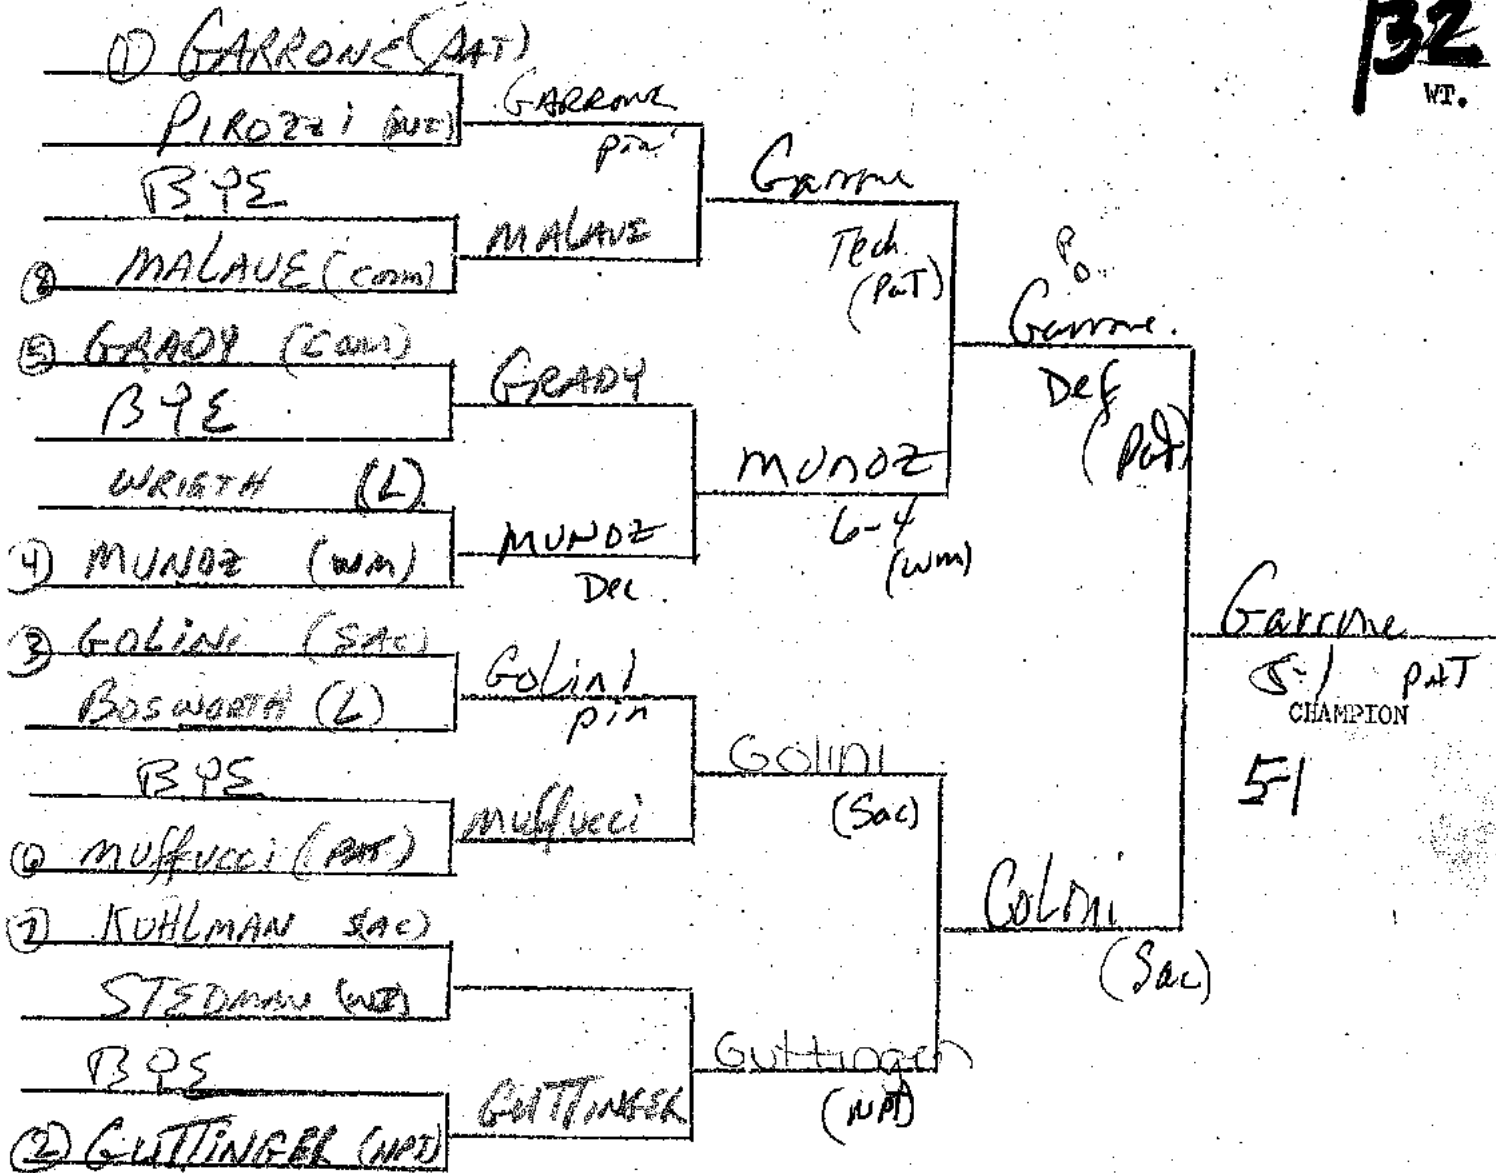 132
WT.
① GARRONE (PAT)
PIROZZI
BYE
⑧ MALAVE (Com)
⑤ GRADY (Com)
BYE
WRIGTH (L)
④ MUNOZ (WM)
③ GOLINI (SAC)
BOSWORTH (L)
BYE
⑥ Muffucci (PAT)
⑦ KUHLMAN SAC)
STEDMAN
BYE
② GUTTINGER (NPT)
GARRONE
pin
MALAVE
GRADY
MUNOZ
Dec.
Golini
pin
Muffucci
GUTTINGER
Garrone
Tech.
(PaT)
MUNOZ
6-4
(wm)
Golini
(Sac)
Guttinger
(NPT)
Garrone.
Def
(Pat)
Golini
(Sac)
Garrone
5-1 PAT
CHAMPION
5-1